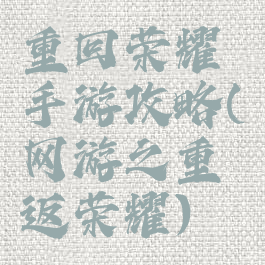 重回荣耀
手游攻略(
网游之重
返荣耀)